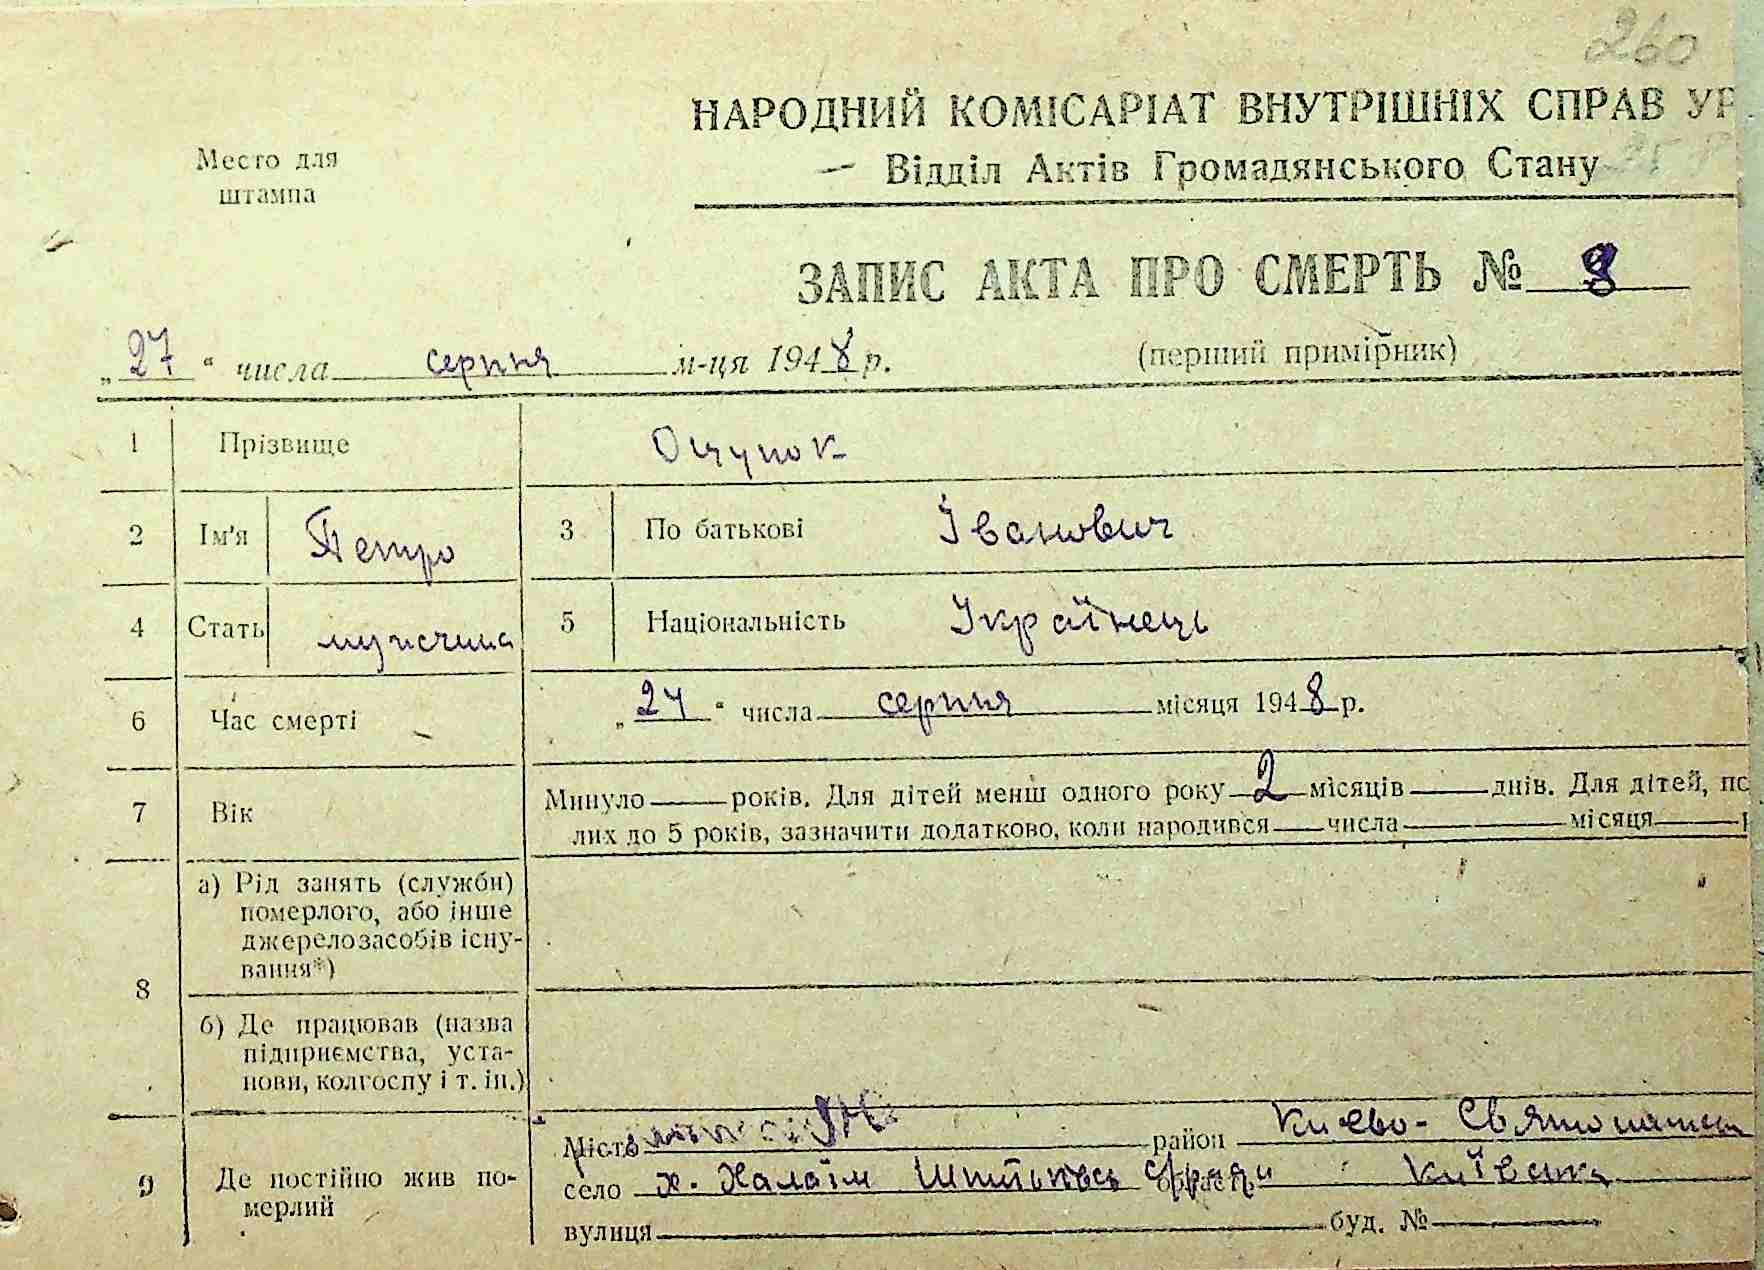 260
НАРОДНИЙ КОМІСАРІАТ ВНУТРІШНІХ СПРАВ УР
Место для
штампа
Відділ Актів Громадянського Стану
ЗАПИС АКТА ПРО СМЕРТЬ № 8
„27“ числа серпня м-ця 1948 р.
(перший примірник)
1 Прізвище Ошупок
2 Ім'я Петро 3 По батькові Іванович
4 Стать мужчина 5 Національність Українець
6 Час смерті „24“ числа серпня місяця 1948 р.
7 Вік Минуло — років. Для дітей менш одного року 2 місяців — днів. Для дітей, по
лих до 5 років, зазначити додатково, коли народився — числа — місяця —
8 а) Рід занять (служби)
померлого, або інше
джерело засобів існу-
вання*)
б) Де працював (назва
підприємства, уста-
нови, колгоспу і т. ін.)
9 Де постійно жив по-
мерлий
Місто район Києво-
село х. Халаїм область Київська
вулиця буд. №